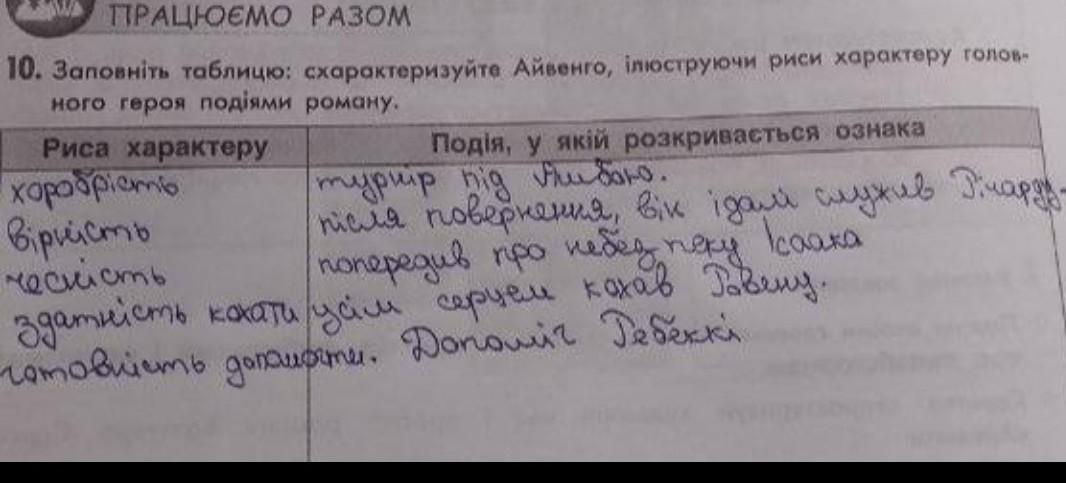 ПРАЦЮЄМО РАЗОМ
10. Заповніть таблицю: схарактеризуйте Айвенго, ілюструючи риси характеру голов-
ного героя подіями роману.
Риса характеру Подія, у якій розкривається ознака
хоробрість турнір під Ашбаю.
вірність після повернення, він ідалі служив Річарду.
чесність попередив про небезпеку Ісаака
здатність кохати усім серцем кохав Ровену.
готовність допомогти. Допоміг Ребеккі